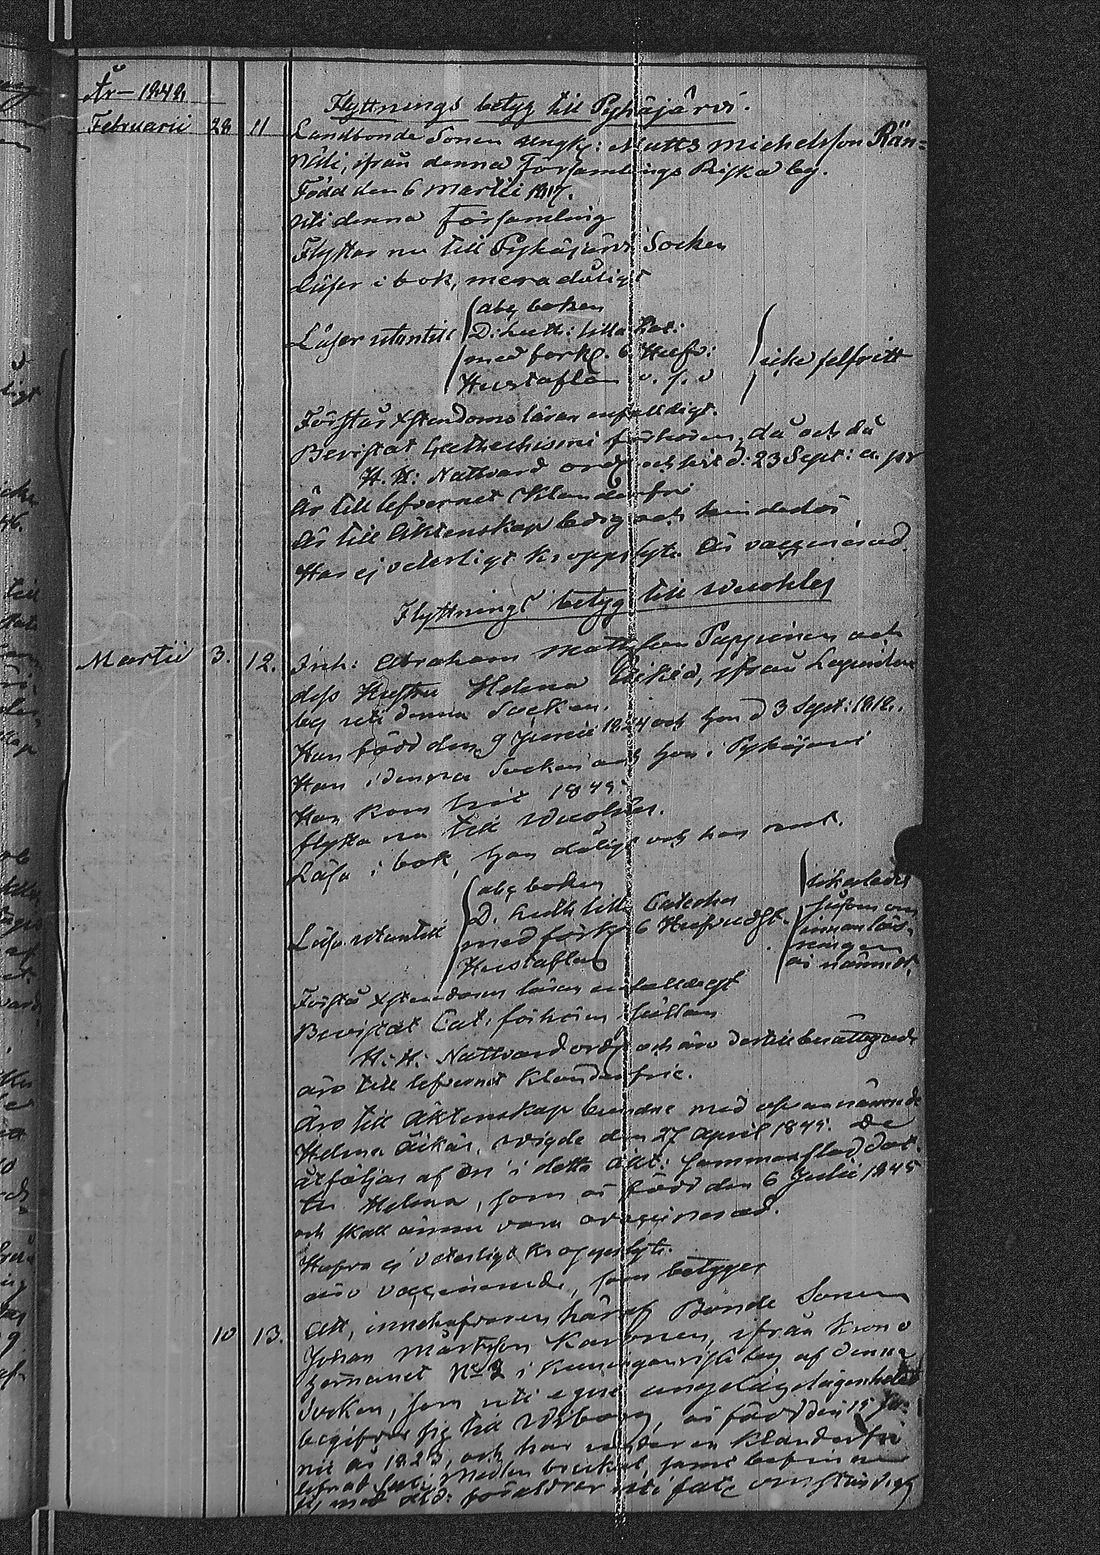 År 1848
Flyttnings betyg till Pyhäjärvi.
Februarii 28 11 Landbonde Sonen ungk: Matts Michelsson Rän=
näli, ifrån denna Församlings Riska by.
Född den 6 Martii 1817.
uti denna Församling
Flyttar nu till Pyhäjärvi Socken
Läser i bok, mera dåligt
Läser utantill abc boken
D: Luth: lilla Cat:
med förkl. 6 Hufv:
Hustaflan
icke felfritt
Förstår xstendoms läran enfalldigt.
Bevistat Cathechismi förhören, då och då
H. H: Nattvard ord. och sist d. 23 Sept: a. pr
Är till lefvernet Klanderfri
Är till Äktenskap ledig och
Har ej veterligt kroppslyte. Är vaccinerad.
Flyttnings betyg till
Martii 3. 12. Inh: Abraham Mattsson Pappinen och
dess Hustru Helena Äikiä, ifrån
by uti denna Socken.
Han född den 9 Junii 1824 och hon d 3 Sept: 1818.
Han i denna Socken och hon i Pyhäjärvi
Hon kom hit 1845.
flytta nu till
Läsa i bok, han dåligt och hon
Läsa utantill abc boken
D. Luth lilla Catechis
med förkl 6 Hufvudst.
Hustaflan
likaledes
såsom om
innanläs-
ningen
är nämndt.
Förstå xstendoms läran enfalldigt
Bevistat Cat. förhören sällan
H. H: Nattvard ord. och äro dertill berättigade
äro till lefvernet Klanderfrie.
Äro till Äktenskap bundne med ofvannämnde
Helena Äikiäs, vigde den 27 April 1845. De
åtföljas af en i detta äkt: sammanaflad dot-
ter Helena, som är född den 6 Julii 1845
och skall ännu vara ovaccinerad.
Hafva ej veterligt kroppslyte.
äro vaccinerade, som betygges
10 13. Att, innehafvaren häraf Bonde Sonen
Johan Mårtsson Karonen, ifrån Krono
hemanet No 2 i by af denna
Socken, som uti egne angelägenheter
begifver sig till Wiborg, är född den 15
nii år 1823, och har under en Klanderfri
lefnad
med föräldrar uti